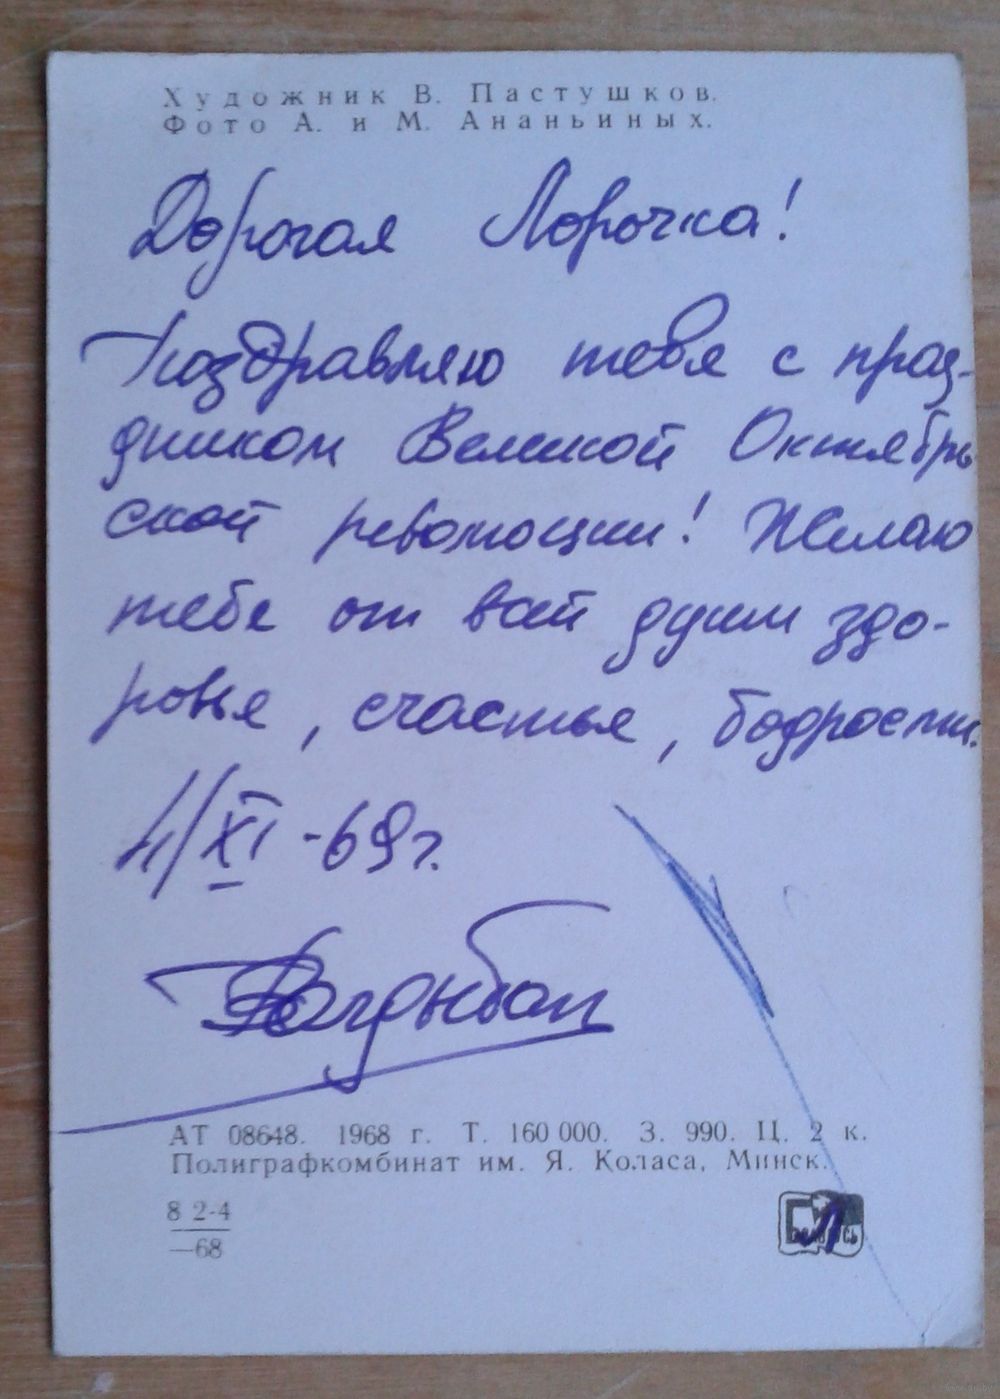 Художник В. Пастушков.
Фото А. и М. Ананьиных.
Дорогая Лорочка!
Поздравляю тебя с праз-
дником Великой Октябрь
ской революции! Желаю
тебе от всей души здо-
ровья, счастья, бодрости.
4/XI-69г.
АТ 08648. 1968 г. Т. 160 000. З. 990. Ц. 2 к.
Полиграфкомбинат им. Я. Коласа, Минск.
8 2-4
—68